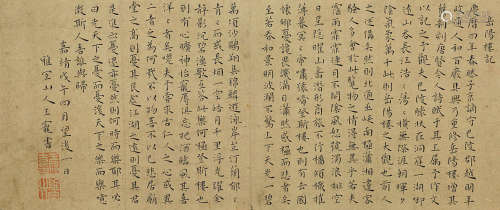 岳陽樓記
慶曆四年春滕子京謫守巴陵郡越明年
政通人和百廢具興乃重修岳陽樓增其
舊制刻唐賢今人詩賦于其上屬予作文
以記之予觀夫巴陵勝狀在洞庭一湖銜
遠山吞長江浩浩湯湯橫無際涯朝暉夕
陰氣象萬千此則岳陽樓之大觀也前人
之述備矣然則北通巫峽南極瀟湘遷客
騷人多會于此覽物之情得無異乎若夫
霪雨霏霏連月不開陰風怒號濁浪排空
日星隱曜山岳潛形商旅不行檣傾楫摧
薄暮冥冥虎嘯猿啼登斯樓也則有去國
懷鄉憂讒畏譏滿目蕭然感極而悲者矣
至若春和景明波瀾不驚上下天光一碧
萬頃沙鷗翔集錦鱗遊泳岸芷汀蘭郁郁
青青而或長煙一空皓月千里浮光耀金
靜影沉璧漁歌互答此樂何極登斯樓也
則有心曠神怡寵辱皆忘把酒臨風其喜
洋洋者矣嗟夫予嘗求古仁人之心或異
二者之為何哉不以物喜不以己悲居廟
堂之高則憂其民處江湖之遠則憂其君
是進亦憂退亦憂然則何時而樂耶其必
曰先天下之憂而憂後天下之樂而樂歟
微斯人吾誰與歸
嘉靖戊四月望後一日
雅宜山人王寵書